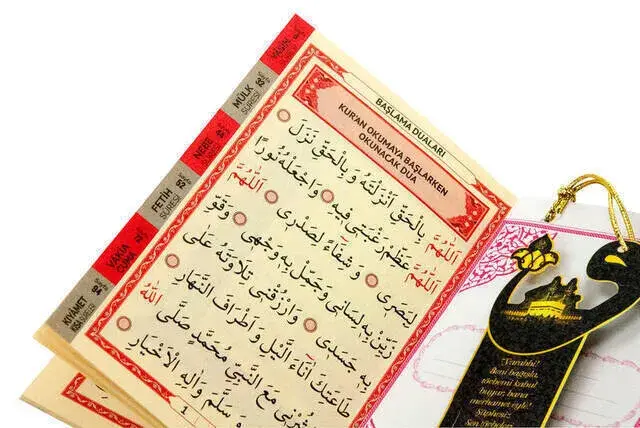 YASİN
SURESİ
MÜLK
SURESİ
NEBE
SURESİ
FETİH
SURESİ
Sayfa 52
VAKIA
CUMA
KIYAMET
SURELERİ
Sayfa 94
BAŞLAMA DUALARI
KUR'AN OKUMAYA BAŞLARKEN
OKUNACAK DUA
اَللّٰهُمَّ بِالْحَقِّ اَنْزَلْتَهُ وَ بِالْحَقِّ نَزَلَ
اَللّٰهُمَّ عَظِّمْ رَغْبَتِى فِيهِ وَاجْعَلْهُ نُورًا
لِبَصَرِى وَ شِفَاءً لِصَدْرِى اَللّٰهُمَّ
زَيِّنْ بِهِ لِسَانِى وَ جَمِّلْ بِهِ وَجْهِى وَ قَوِّ
بِهِ جَسَدِى وَارْزُقْنِى تِلَاوَتَهُ عَلَى
طَاعَتِكَ اٰنَاءَ الَّيْلِ وَ اَطْرَافَ النَّهَارِ
مَعَ النَّبِىِّ مُحَمَّدٍ صَلَّى اللّٰهُ
وَ سَلَّمَ وَاٰلِهِ الْاَخْيَارِ
1
و
Yarabbi!
Beni bağışla,
tövbemi kabul
buyur, bana
merhamet eyle!
Şüphesiz